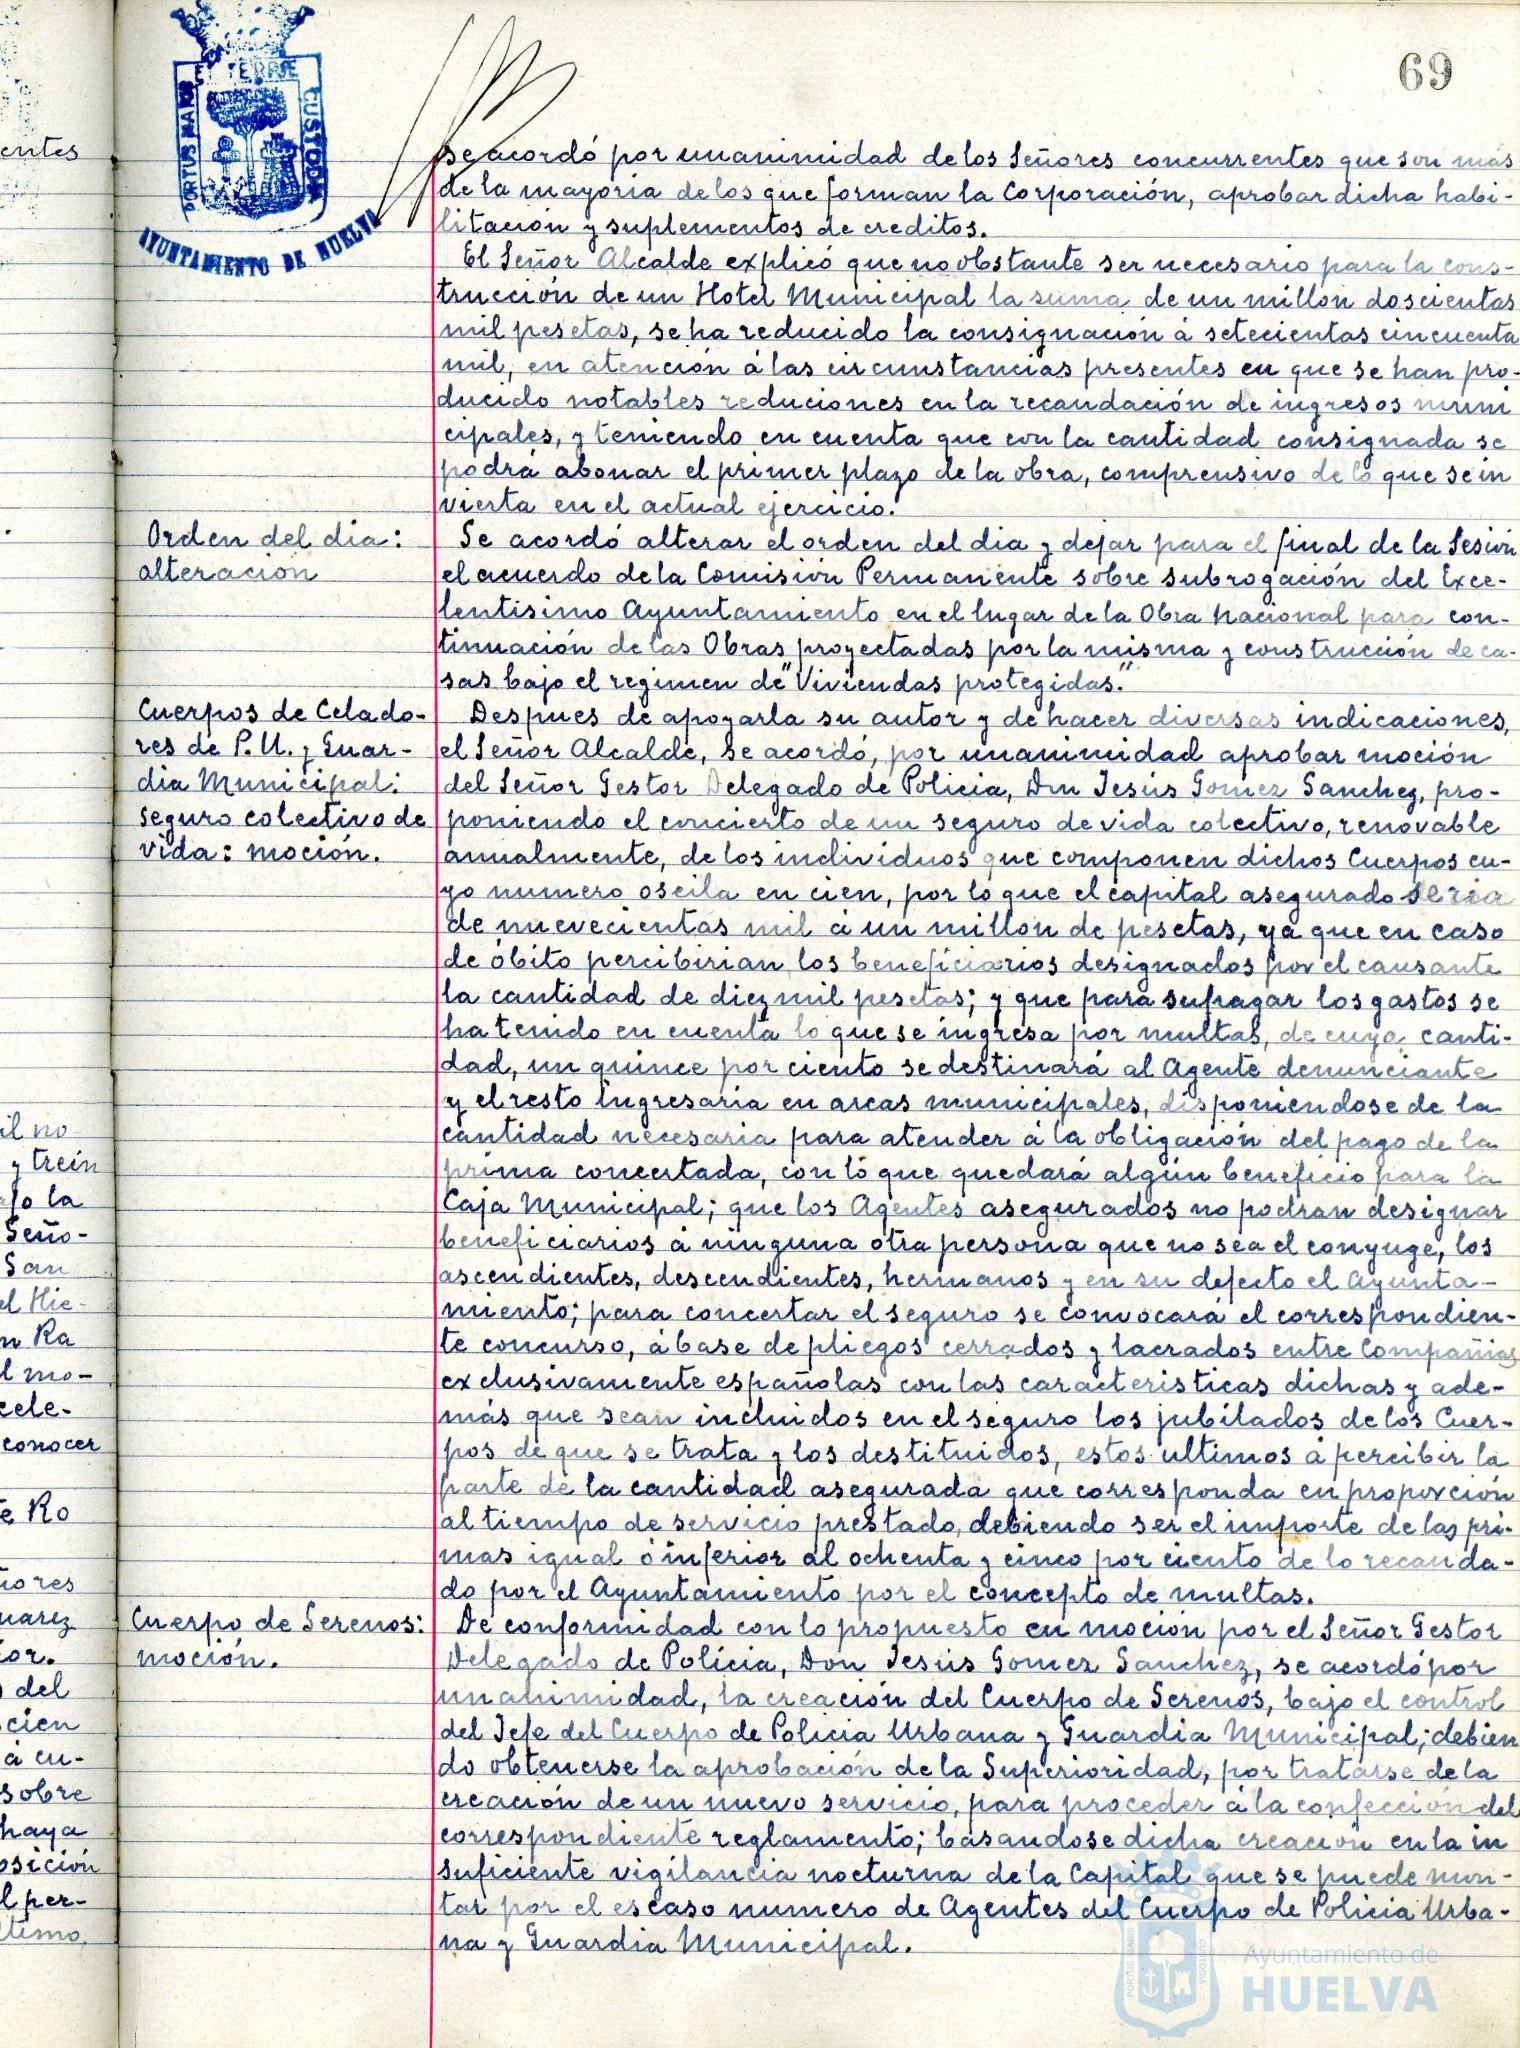 69
PORTUS MARIS ET TERRE CUSTODIA
AYUNTAMIENTO DE HUELVA
se acordó por unanimidad de los Señores concurrentes que son más
de la mayoria de los que forman la Corporación, aprobar dicha habi-
litación y suplementos de creditos.
El Señor Alcalde explicó que no obstante ser necesario para la cons-
trucción de un Hotel Municipal la suma de un millon doscientas
mil pesetas, se ha reducido la consignación á setecientas cincuenta
mil, en atención á las circunstancias presentes en que se han pro-
ducido notables reduciones en la recaudación de ingresos muni
cipales, y teniendo en cuenta que con la cantidad consignada se
podrá abonar el primer plazo de la obra, comprensivo de lo que se in
vierta en el actual ejercicio.
Orden del dia:
alteración
Se acordó alterar el orden del dia y dejar para el final de la Sesión
el acuerdo de la Comisión Permanente sobre subrogación del Exce-
lentisimo Ayuntamiento en el lugar de la Obra Nacional para con-
tinuación de las Obras proyectadas por la misma y construcción de ca-
sas bajo el regimen de "Viviendas protegidas."
Cuerpos de Celado-
res de P.U. y Guar-
dia Municipal:
seguro colectivo de
vida: moción.
Despues de apoyarla su autor y de hacer diversas indicaciones,
el Señor Alcalde, se acordó, por unanimidad aprobar moción
del Señor Gestor Delegado de Policia, Don Jesús Gomez Sanchez, pro-
poniendo el concierto de un seguro de vida colectivo, renovable
anualmente, de los individuos que componen dichos Cuerpos cu-
yo numero oscila en cien, por lo que el capital asegurado seria
de nuevecientas mil á un millon de pesetas, ya que en caso
de óbito percibirian los beneficiarios designados por el causante
la cantidad de diez mil pesetas; y que para sufragar los gastos se
ha tenido en cuenta lo que se ingresa por multas, de cuya canti-
dad, un quince por ciento se destinará al Agente denunciante
y el resto ingresaria en arcas municipales, disponiendose de la
cantidad necesaria para atender á la obligación del pago de la
prima concertada, con lo que quedará algún beneficio para la
Caja Municipal; que los Agentes asegurados no podran designar
beneficiarios á ninguna otra persona que no sea el conyuge, los
ascendientes, descendientes, hermanos y en su defecto el Ayunta-
miento; para concertar el seguro se convocará el correspondien-
te concurso, á base de pliegos cerrados y lacrados entre Compañias
exclusivamente españolas con las caracteristicas dichas y ade-
más que sean incluidos en el seguro los jubilados de los Cuer-
pos de que se trata y los destituidos, estos ultimos á percibir la
parte de la cantidad asegurada que corresponda en proporción
al tiempo de servicio prestado, debiendo ser el importe de las pri-
mas igual ó inferior al ochenta y cinco por ciento de lo recauda-
do por el Ayuntamiento por el concepto de multas.
Cuerpo de Serenos:
moción.
De conformidad con lo propuesto en moción por el Señor Gestor
Delegado de Policia, Don Jesús Gomez Sanchez, se acordó por
unanimidad, la creación del Cuerpo de Serenos, bajo el control
del Jefe del Cuerpo de Policia Urbana y Guardia Municipal; debien
do obtenerse la aprobación de la Superioridad, por tratarse de la
creación de un nuevo servicio, para proceder á la confección del
correspondiente reglamento; basandose dicha creación en la in
suficiente vigilancia nocturna de la Capital que se puede mon-
tar por el escaso numero de Agentes del Cuerpo de Policia Urba-
na y Guardia Municipal.
entes
il no
y trein
ajo la
Seño-
San
el Hie-
n Ra
l mo-
cele-
conocer
te Ro
ñores
uarez
ior.
o del
cien
á cu-
sobre
haya
osición
l per-
ltimo,
Ayuntamiento de
HUELVA